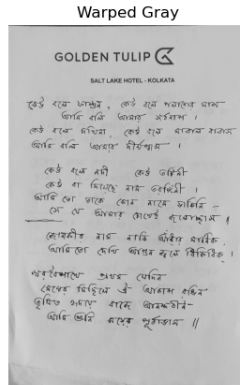 Warped Gray
GOLDEN TULIP
SALT LAKE HOTEL - KOLKATA
কেউ বলে ফাল্গুন, কেউ বলে পলাশের মাস
আমি বলি আমার সর্বনাশ ।
কেউ বলে দখিনা, কেউ বলে মাতাল বাতাস
আমি বলি আমার দীর্ঘশ্বাস ।
কেউ বলে নদী কেউ তটিনী
কেউ বা দিয়েছে নাম তরঙ্গিনী ।
আমি তো তাকে কোন নামে ডাকিনি –
সে যে আমার চোখেই জলোচ্ছ্বাস ।
জোনাকির নাম নাকি আঁধার মানিক
আমি তো দেখি আগুন জ্বলে ধিকিধিক ।
খর বৈশাখে প্রথম যেদিন
মেঘের মিছিলে ঐ আকাশ রঙিন
তৃষিত হৃদয়ে বাজে আনন্দবীন
আমি শুনি ঝড়ের পূর্বাভাস ॥